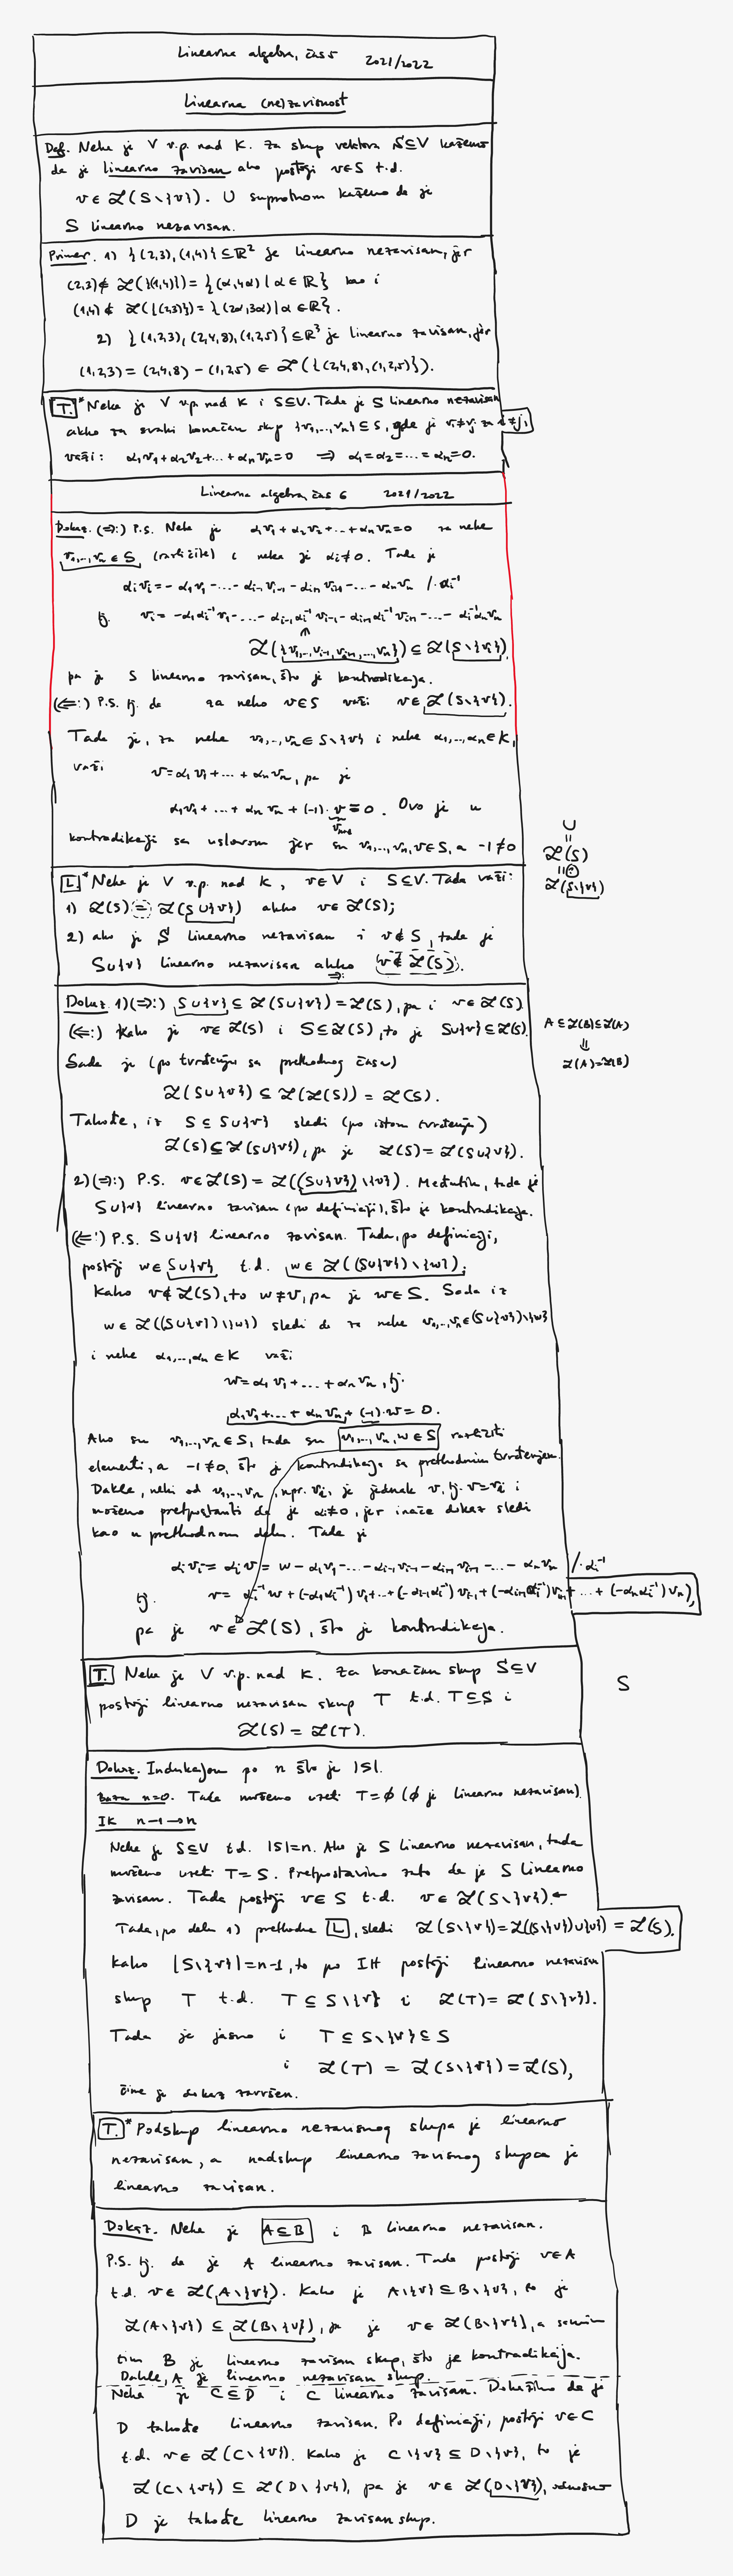 Linearna algebra, čas 5 2021/2022
Linearna (ne)zavisnost
Def. Neka je V v.p. nad K. Za skup vektora S⊆V kažemo
da je linearno zavisan ako postoji v∈S t.d.
v∈ℒ(S\{v}). U suprotnom kažemo da je
S linearno nezavisan.
Primer. 1) {(2,3),(1,4)}⊆ℝ² je linearno nezavisan, jer
(2,3)∉ℒ({(1,4)})={(α,4α)|α∈ℝ} kao i
(1,4)∉ℒ({(2,3)})={(2α,3α)|α∈ℝ}.
2) {(1,2,3),(2,4,8),(1,2,5)}⊆ℝ³ je linearno zavisan, jer
(1,2,3)=(2,4,8)-(1,2,5)∈ℒ({(2,4,8),(1,2,5)}).
T.* Neka je V v.p. nad K i S⊆V. Tada je S linearno nezavisan
akko za svaki konačan skup {v₁,...,vₙ}⊆S, gde je vᵢ≠vⱼ za i≠j,
važi: α₁v₁+α₂v₂+...+αₙvₙ=0 ⇒ α₁=α₂=...=αₙ=0.
Linearna algebra, čas 6 2021/2022
Dokaz. (⇒:) P.S. Neka je α₁v₁+α₂v₂+...+αₙvₙ=0 za neke
v₁,...,vₙ∈S (različite) i neka je αᵢ≠0. Tada je
αᵢvᵢ=-α₁v₁-...-αᵢ₋₁vᵢ₋₁-αᵢ₊₁vᵢ₊₁-...-αₙvₙ /·αᵢ⁻¹
tj. vᵢ=-α₁αᵢ⁻¹v₁-...-αᵢ₋₁αᵢ⁻¹vᵢ₋₁-αᵢ₊₁αᵢ⁻¹vᵢ₊₁-...-αᵢ⁻¹αₙvₙ
ℒ({v₁,...,vᵢ₋₁,vᵢ₊₁,...,vₙ})⊆ℒ(S\{vᵢ}),
pa je S linearno zavisan, što je kontradikcija.
(⇐:) P.S. tj. da za neko v∈S važi v∈ℒ(S\{v}).
Tada je, za neke v₁,...,vₙ∈S\{v} i neke α₁,...,αₙ∈K,
važi v=α₁v₁+...+αₙvₙ, pa je
α₁v₁+...+αₙvₙ+(-1)·v=0. Ovo je u
vₙ₊₁
kontradikciji sa uslovom jer su v₁,...,vₙ,v∈S, a -1≠0
U
=
ℒ(S)
=
ℒ(S\{v})
L* Neka je V v.p. nad K, v∈V i S⊆V. Tada važi:
1) ℒ(S)=ℒ(S∪{v}) akko v∈ℒ(S);
2) ako je S linearno nezavisan i v∉S, tada je
S∪{v} linearno nezavisan akko v∉ℒ(S).
Dokaz. 1)(⇒:) S∪{v}⊆ℒ(S∪{v})=ℒ(S), pa i v∈ℒ(S)
(⇐:) Kako je v∈ℒ(S) i S⊆ℒ(S), to je S∪{v}⊆ℒ(S).
A⊆ℒ(B)⊆ℒ(A)
⇓
ℒ(A)=ℒ(B)
Sada je (po tvrđenju sa prethodnog časa)
ℒ(S∪{v})⊆ℒ(ℒ(S))=ℒ(S).
Takođe, iz S⊆S∪{v} sledi (po istom tvrđenju)
ℒ(S)⊆ℒ(S∪{v}), pa je ℒ(S)=ℒ(S∪{v}).
2)(⇒:) P.S. v∈ℒ(S)=ℒ((S∪{v})\{v}). Međutim, tada je
S∪{v} linearno zavisan (po definiciji), što je kontradikcija.
(⇐:) P.S. S∪{v} linearno zavisan. Tada, po definiciji,
postoji w∈S∪{v} t.d. w∈ℒ((S∪{v})\{w}).
Kako v∉ℒ(S), to w≠v, pa je w∈S. Sada iz
w∈ℒ((S∪{v})\{w}) sledi da za neke v₁,...,vₙ∈(S∪{v})\{w}
i neke α₁,...,αₙ∈K važi
w=α₁v₁+...+αₙvₙ, tj.
α₁v₁+...+αₙvₙ+(-1)·w=0.
Ako su v₁,...,vₙ∈S, tada su v₁,...,vₙ,w∈S različiti
elementi, a -1≠0, što je kontradikcija sa prethodnim tvrđenjem.
Dakle, neki od v₁,...,vₙ, npr. vᵢ, je jednak v, tj. v=vᵢ i
možemo pretpostaviti da je αᵢ≠0, jer inače dokaz sledi
kao u prethodnom delu. Tada je
αᵢvᵢ=αᵢv=w-α₁v₁-...-αᵢ₋₁vᵢ₋₁-αᵢ₊₁vᵢ₊₁-...-αₙvₙ /·αᵢ⁻¹
tj. v=αᵢ⁻¹w+(-α₁αᵢ⁻¹)v₁+...+(-αᵢ₋₁αᵢ⁻¹)vᵢ₋₁+(-αᵢ₊₁αᵢ⁻¹)vᵢ₊₁+...+(-αₙαᵢ⁻¹)vₙ),
pa je v∈ℒ(S), što je kontradikcija.
T. Neka je V v.p. nad K. Za konačan skup S⊆V
postoji linearno nezavisan skup T t.d. T⊆S i
ℒ(S)=ℒ(T).
S
Dokaz. Indukcijom po n što je |S|.
Baza n=0. Tada možemo uzeti T=∅ (∅ je linearno nezavisan).
IK n-1→n
Neka je S⊆V t.d. |S|=n. Ako je S linearno nezavisan, tada
možemo uzeti T=S. Pretpostavimo zato da je S linearno
zavisan. Tada postoji v∈S t.d. v∈ℒ(S\{v}).←
Tada, po delu 1) prethodne L, sledi ℒ(S\{v})=ℒ((S\{v})∪{v})=ℒ(S).
Kako |S\{v}|=n-1, to po IH postoji linearno nezavisan
skup T t.d. T⊆S\{v} i ℒ(T)=ℒ(S\{v}).
Tada je jasno i T⊆S\{v}⊆S
i ℒ(T)=ℒ(S\{v})=ℒ(S),
čime je dokaz završen.
T.* Podskup linearno nezavisnog skupa je linearno
nezavisan, a nadskup linearno zavisnog skupa je
linearno zavisan.
Dokaz. Neka je A⊆B i B linearno nezavisan.
P.S. tj. da je A linearno zavisan. Tada postoji v∈A
t.d. v∈ℒ(A\{v}). Kako je A\{v}⊆B\{v}, to je
ℒ(A\{v})⊆ℒ(B\{v}), pa je v∈ℒ(B\{v}), a samim
tim B je linearno zavisan skup, što je kontradikcija.
Dakle, A je linearno nezavisan skup.
Neka je C⊆D i C linearno zavisan. Dokažimo da je
D takođe linearno zavisan. Po definiciji, postoji v∈C
t.d. v∈ℒ(C\{v}). Kako je C\{v}⊆D\{v}, to je
ℒ(C\{v})⊆ℒ(D\{v}), pa je v∈ℒ(D\{v}), odnosno
D je takođe linearno zavisan skup.